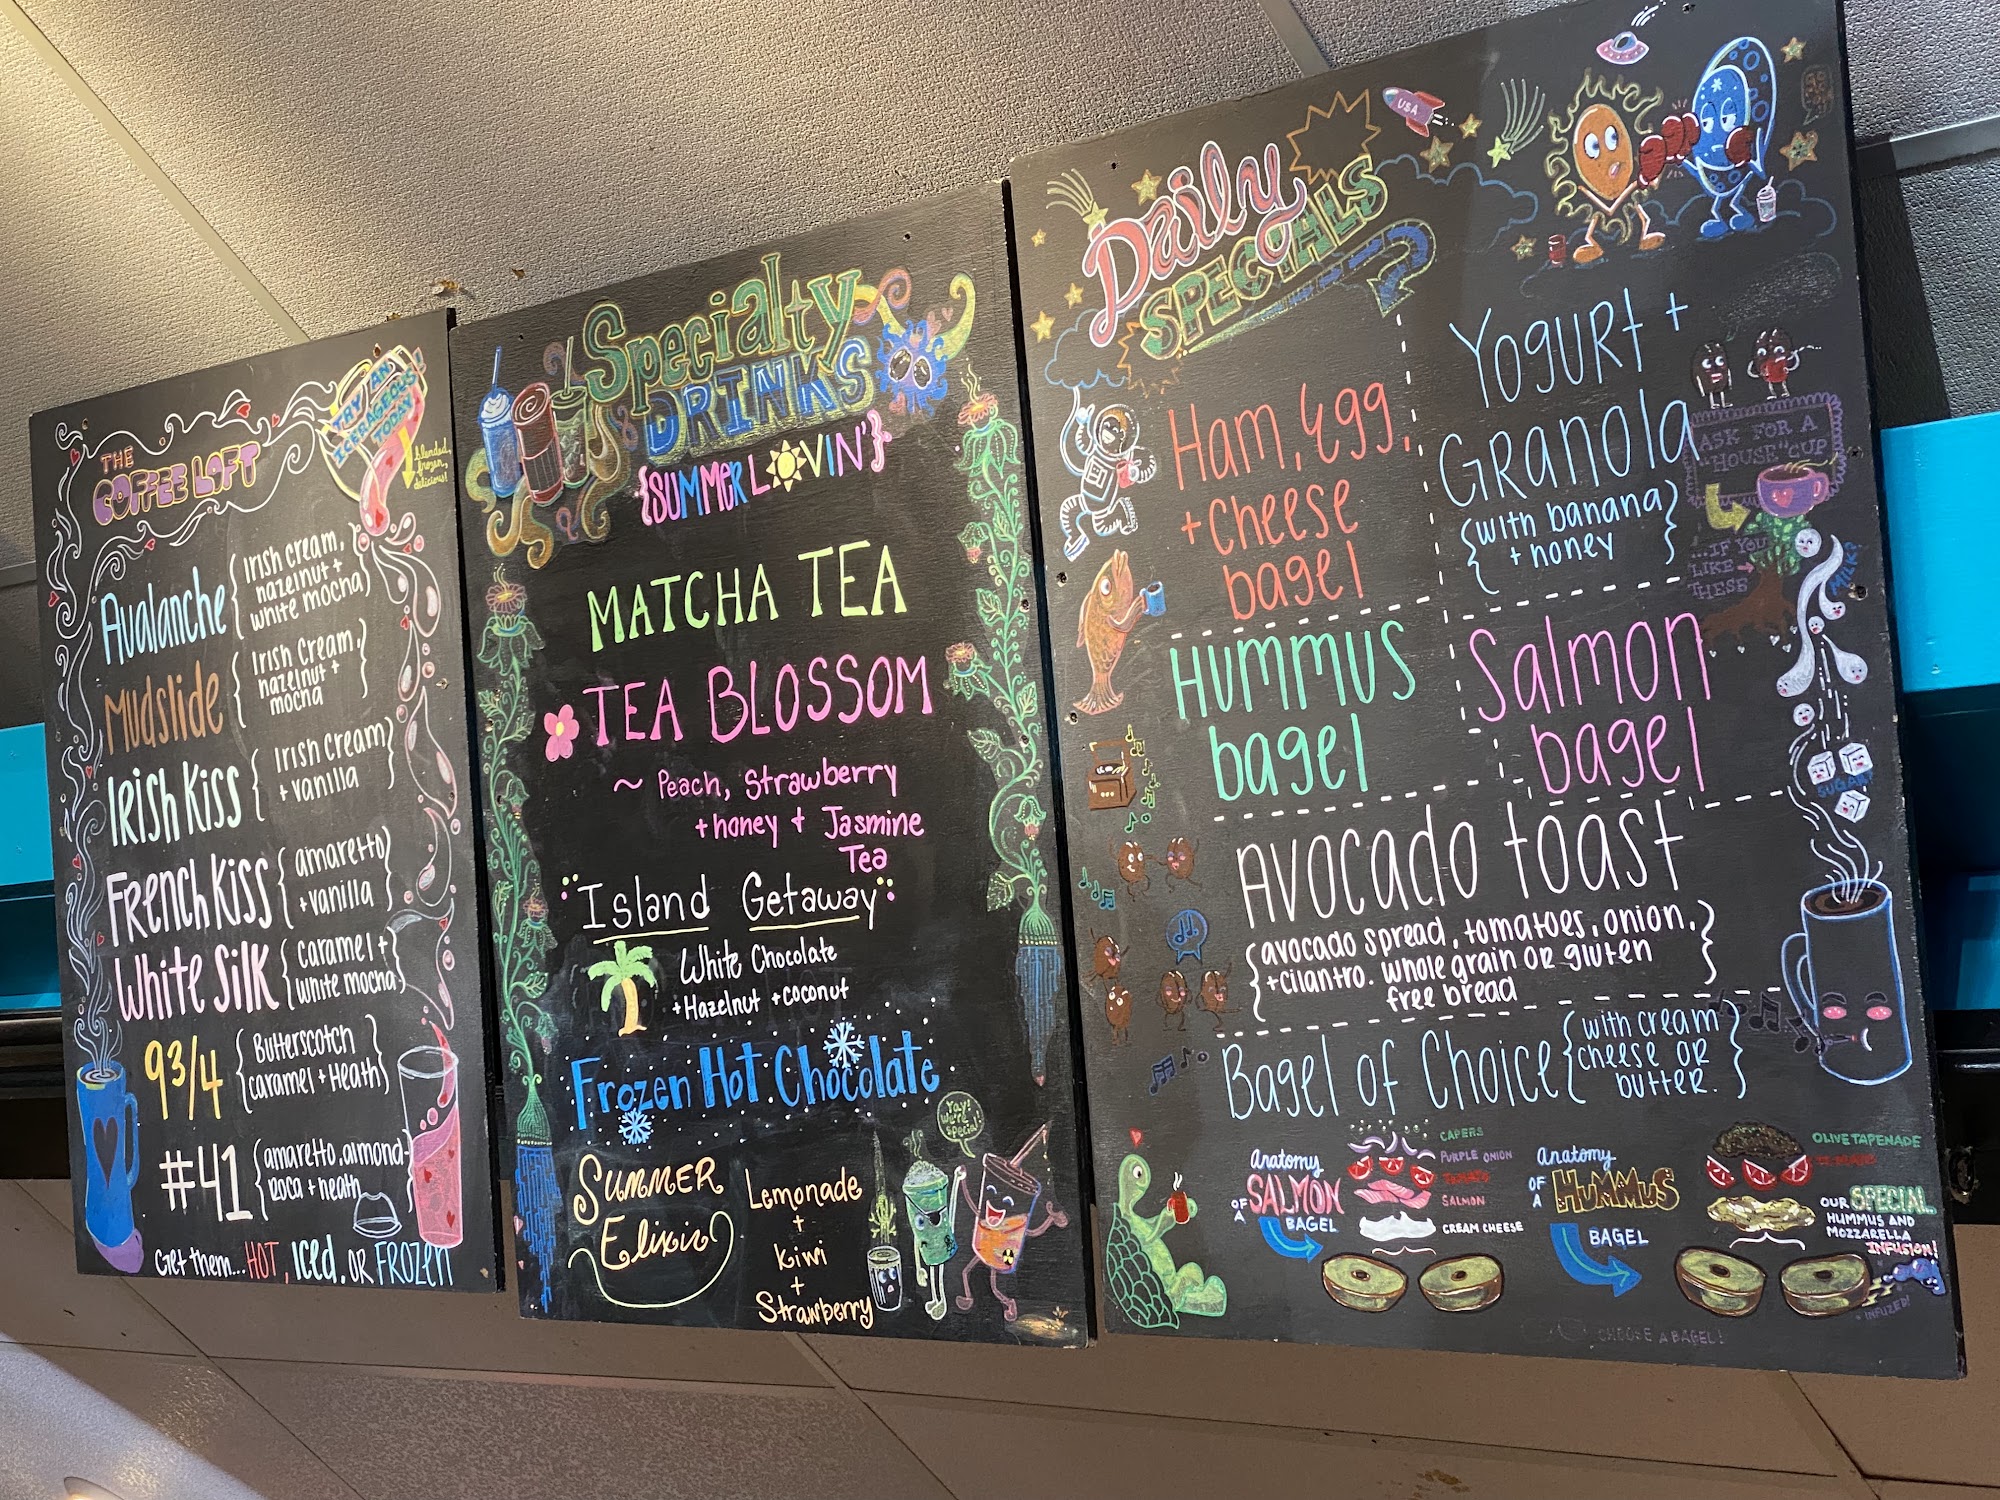 THE
COFFEE LOFT
TRY AN
ICERAGEOUS
TODAY!
blended,
frozen,
delicious!
Avalanche { Irish cream,
hazelnut +
white mocha }
Mudslide { Irish Cream,
hazelnut +
mocha }
Irish Kiss { Irish Cream
+ vanilla }
French Kiss { amaretto
+ vanilla }
White Silk { caramel +
white mocha }
93/4 { Butterscotch
caramel + Heath }
#41 { amaretto, almond-
roca + heath }
Get them... HOT, iced, OR FROZEN
Specialty
DRINKS
{SUMMER LOVIN'}
MATCHA TEA
TEA BLOSSOM
~ Peach, Strawberry
+ honey + Jasmine
Tea
Island Getaway
White Chocolate
+ Hazelnut + coconut
Frozen Hot Chocolate
Yay!
We're
Special!
Summer
Elixir
Lemonade
+
Kiwi
+
Strawberry
Daily
SPECIALS
USA
Ham, egg,
+ cheese
bagel
Yogurt +
Granola
{ with banana
+ honey }
ASK FOR A
"HOUSE" CUP
...IF YOU
LIKE
THESE
MILK
SUGAR
Hummus
bagel
Salmon
bagel
Avocado toast
{ avocado spread, tomatoes, onion,
+ cilantro. whole grain or gluten
free bread }
Bagel of Choice { with cream
cheese or
butter. }
anatomy
OF A SALMON
BAGEL
CAPERS
PURPLE ONION
TOMATO
SALMON
CREAM CHEESE
anatomy
OF A HUMMUS
BAGEL
OLIVE TAPENADE
TOMATO
OUR SPECIAL
HUMMUS AND
MOZZARELLA
INFUSION!
INFUZED!
CHOOSE A BAGEL!